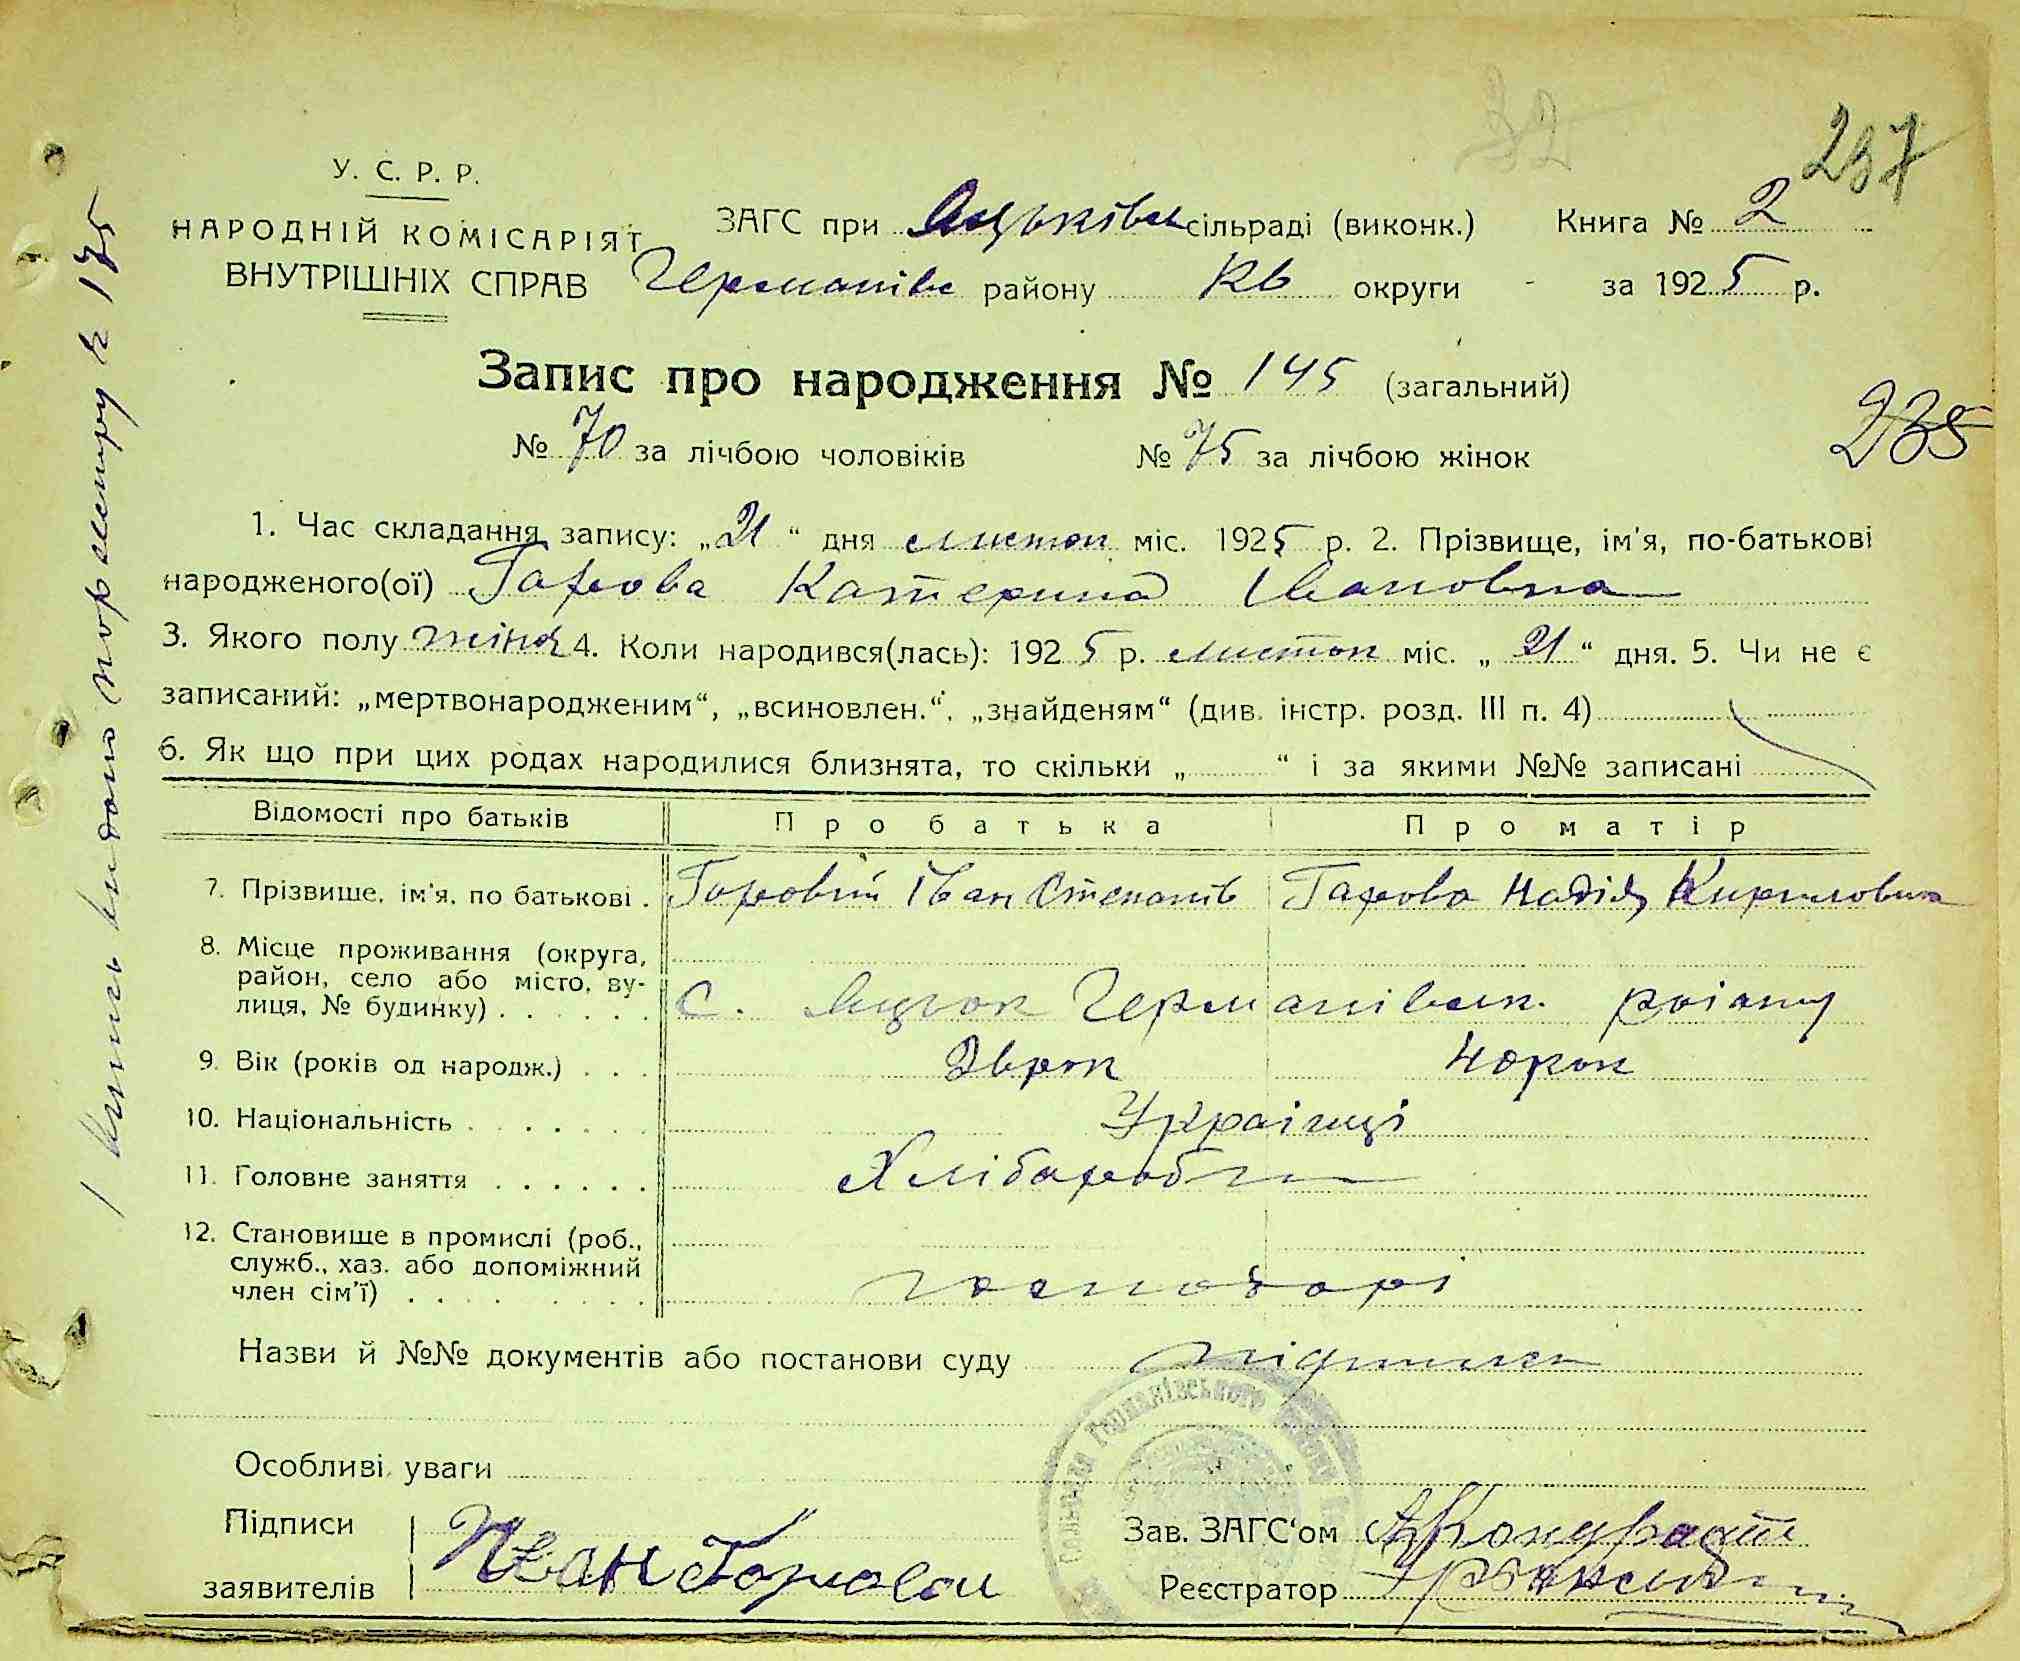 32
237
У. С. Р. Р.
НАРОДНІЙ КОМІСАРІЯТ
ВНУТРІШНІХ СПРАВ
ЗАГС при Яцьківск сільраді (виконк.) Книга № 2
Германівс району КВ округи за 1925 р.
Запис про народження № 145 (загальний)
235
№ 70 за лічбою чоловіків № 75 за лічбою жінок
1. Час складання запису: „21“ дня листоп міс. 1925 р. 2. Прізвище, ім'я, по-батькові
народженого(ої) Гарова Катерина Івановна
3. Якого полу жіноч 4. Коли народився(лась): 1925 р. листоп міс. „21“ дня. 5. Чи не є
записаний: „мертвонародженим“, „всиновлен.“, „знайденям“ (див. інстр. розд. III п. 4)
6. Як що при цих родах народилися близнята, то скільки „ “ і за якими №№ записані
Відомості про батьків Про батька Про матір
7. Прізвище, ім'я, по батькові . Горовий Іван Степанів Гарова Надія Кириловна
8. Місце проживання (округа,
район, село або місто, ву-
лиця, № будинку) . . . . . . с. Яцьок Германівськ. роіану
9. Вік (років од народж.) . . .
10. Національність . . . . . . . Украінці
11. Головне заняття . . . . . . Хлібароби
12. Становище в промислі (роб.,
служб., хаз. або допоміжний
член сім'ї) . . . . . . . . . господарі
Назви й №№ документів або постанови суду
Особливі уваги
Підписи
заявителів Іван Горовой
Зав. ЗАГС'ом АКондрат
Реєстратор
Германівського